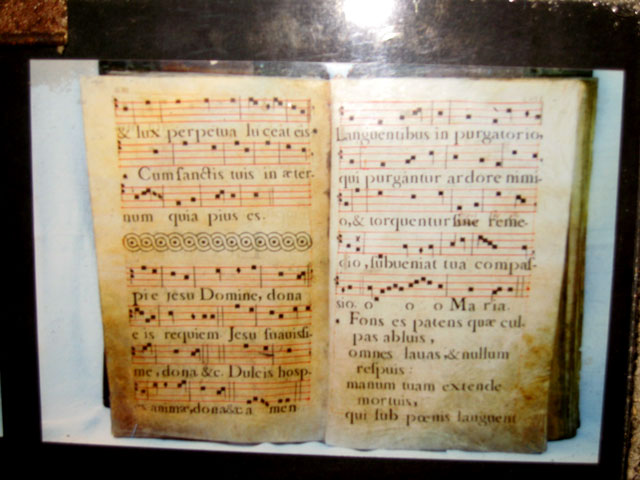 & lux perpetua luceat eis
Cum sanctis tuis in æter-
num quia pius es.
pie Jesu Domine, dona
eis requiem Jesu suauissi-
me, dona &c. Dulcis hosp-
es animæ, dona &c a men
Languentibus in purgatorio,
qui purgantur ardore nimi-
o, & torquentur sine reme-
dio, subueniat tua compas-
sio. o o o Maria.
Fons es patens quæ cul-
pas abluis,
omnes lauas, & nullum
respuis:
manum tuam extende
mortuis,
qui sub pœnis languent